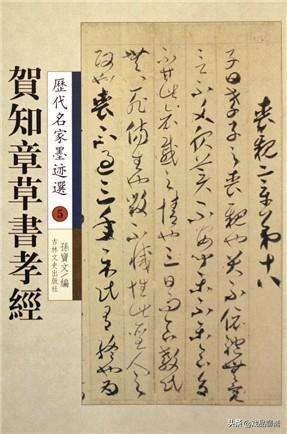 賀知章草書孝經
歷代名家墨迹選
5
孫寶文/編
吉林文史出版社
喪親章第十八
子曰孝子之喪親也哭不依禮無容
言不文服美不安聞樂不樂食旨
不甘此哀戚之情也三日而食教民
無以死傷生也毀不滅性此聖人之
政也喪不過三年示民有終也為
头条